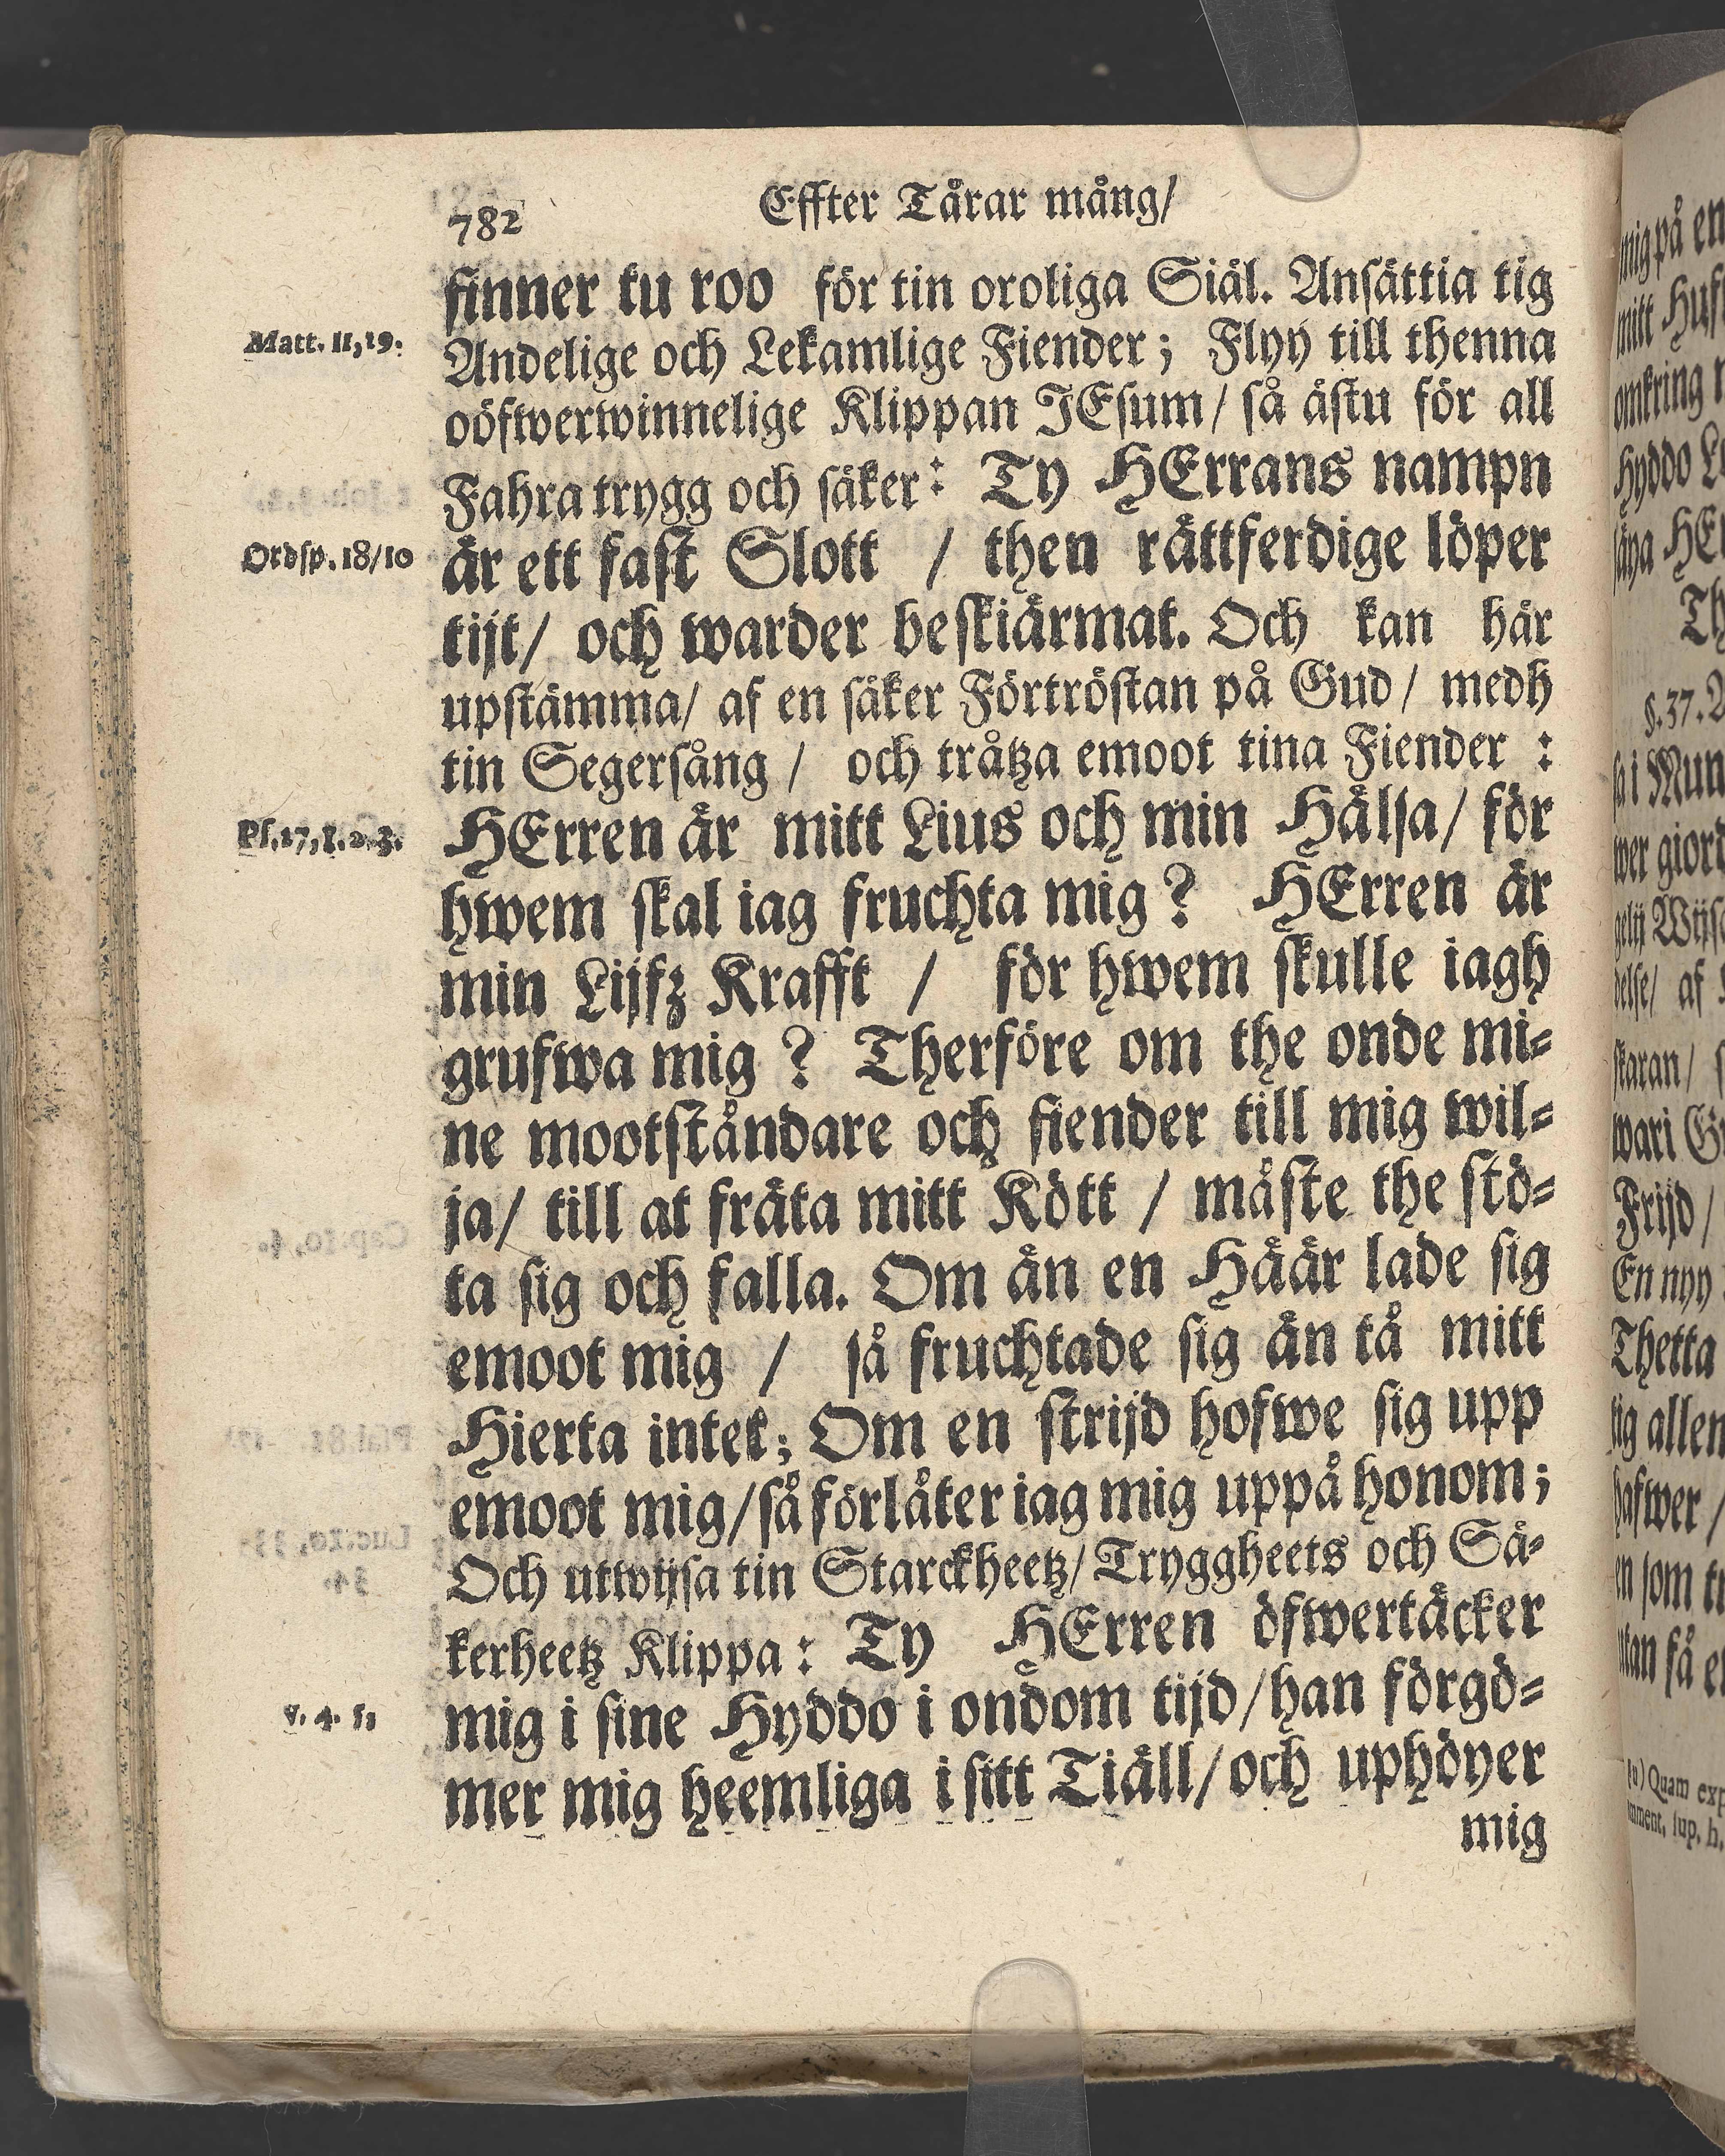 782
Effter Tårar mång/
finner tu roo för tin oroliga Siäl. Ansättia tig
Matt. 11, 19.
Andelige och Lekamlige Fiender; Flyy till thenna
oöfwerwinnelige Klippan JEsum/ så ästu för all
Fahra trygg och säker: Ty HErrans nampn
Ordsp. 18/10
är ett fast Slott / then rättferdige löper
tijt/ och warder beskiärmat. Och kan här
upstämma/ af en säker Förtröstan på Gud/ medh
tin Segersång / och tråtza emoot tina Fiender :
Ps. 17, 1. 2. 3.
HErren är mitt Lius och min Hälsa/ för
hwem skal iag fruchta mig? HErren är
min Lijfz Krafft / för hwem skulle iagh
grufwa mig ? Therföre om the onde mi-
ne mootståndare och fiender till mig wil-
ja/ till at fräta mitt Kött / måste the stö-
ta sig och falla. Om än en Häär lade sig
emoot mig / så fruchtade sig än tå mitt
Hierta intet; Om en strijd hofwe sig upp
emoot mig/ så förlåter iag mig uppå honom;
Och utwijsa tin Starckheetz/ Tryggheets och Sä-
kerheetz Klippa: Ty HErren öfwertäcker
v. 4. 5,
mig i sine Hyddo i ondom tijd/ han förgö-
mer mig heemliga i sitt Tiäll/ och uphöyer
mig
mig på en
mitt
omkring
Hyddo
§. 37.
i Mun
wer giord
af
skaran/
wari
Frijd /
En nyy
Thetta
tig allen
hafwer /
en som
utan få
(u) Quam
sup. h.